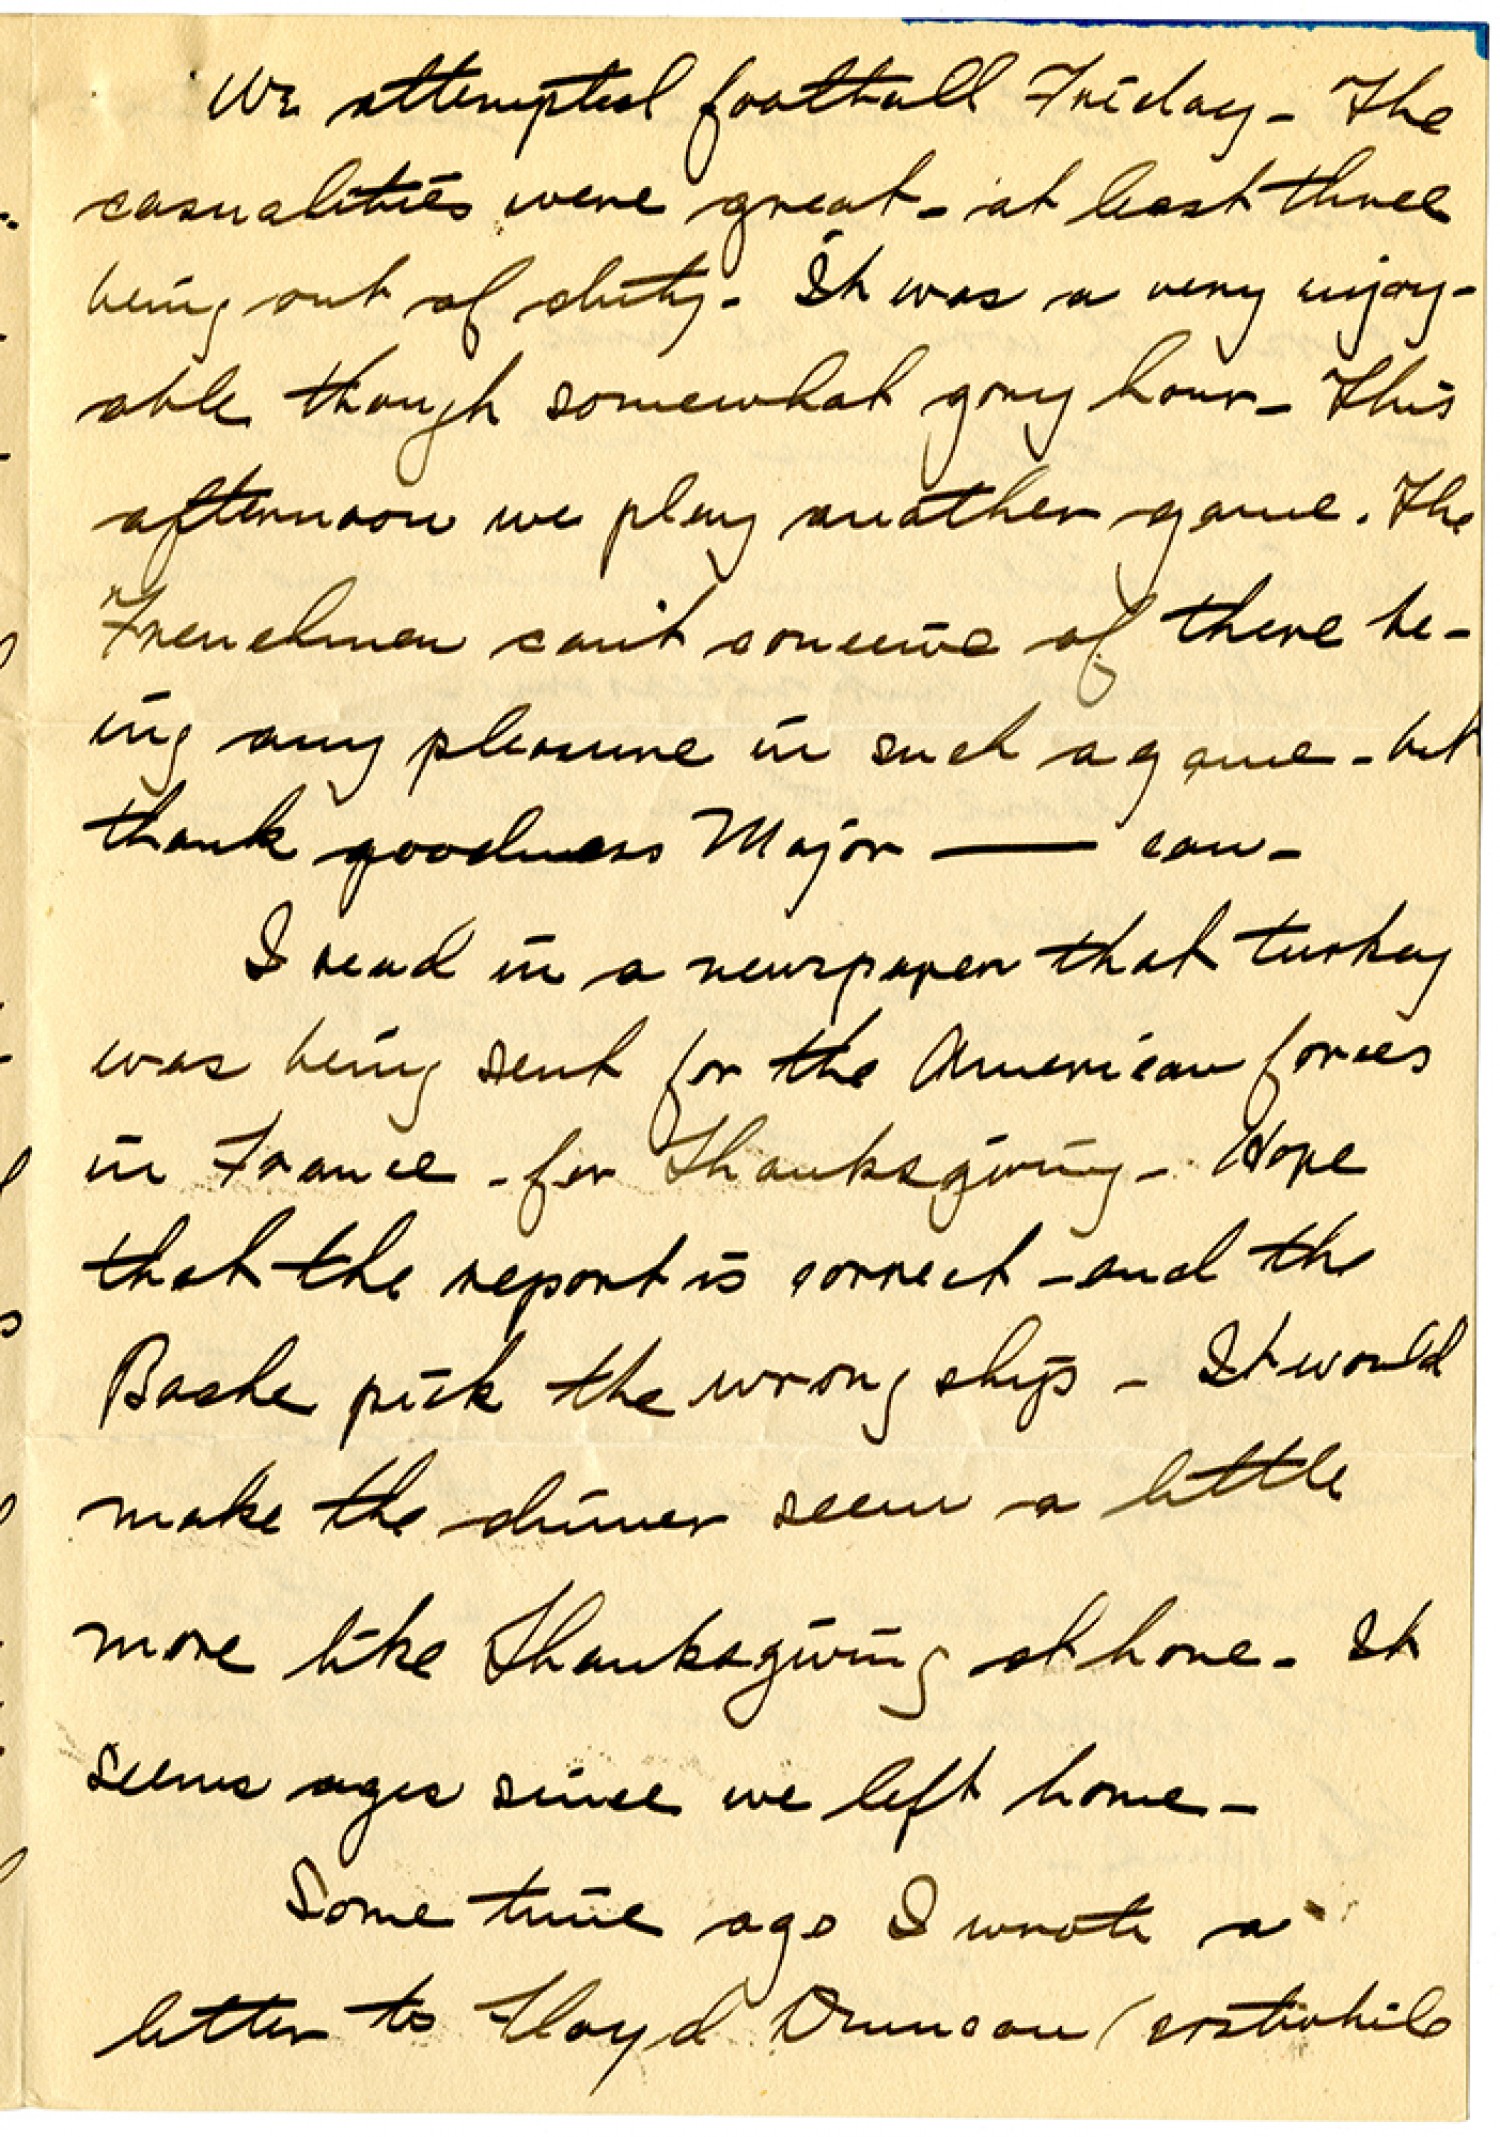 We attempted football Friday - The
casualities were great - at least three
being out of duty - It was a very injoy-
able though somewhat gory hour - This
afternoon we play another game. The
Frenchmen can't conceive of there be-
ing any pleasure in such a game - but
thank goodness Major — can -
I read in a newspaper that turkey
was being sent for the American forces
in France - for Thanksgiving - Hope
that the report is correct - and the
Boche pick the wrong ships - It would
make the dinner seem a little
more like Thanksgiving at home - It
seems ages since we left home -
Some time ago I wrote a
letter to Floyd Duncan (erstwhile